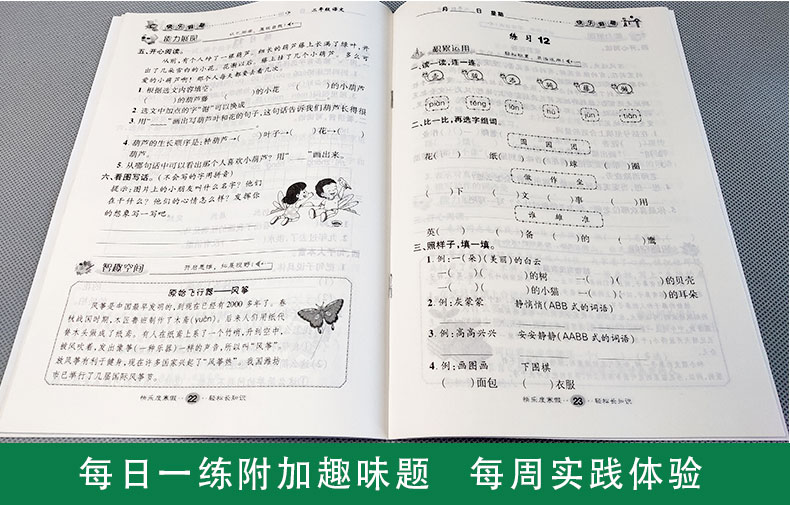 能力展现
五、开心阅读。
从前,有个人种了一棵葫芦。细长的葫芦藤上长满了绿叶,开
出了几朵雪白的小花。花谢以后,藤上挂了几个小葫芦。多么可
爱的小葫芦啊!那个人每天都要去看几次。
1. 根据选文内容填空。
( )的葫芦藤 ( )的小花 ( )的小葫芦
2. 选文中加点的字“谢”可以换成
3. 用“____”画出写葫芦叶和花的句子,这句话告诉我们葫芦长得很
4. 葫芦的生长顺序是:种葫芦→( )叶子→( )花→( )
葫芦。
5. 从哪句话中可以看出那个人喜欢小葫芦?用“____”画出来。
六、看图写话。(不会写的字用拼音)
提示:图片上的小朋友叫什么名字?他们
在干什么?他们的心情怎么样?发挥你
的想象写一写吧。
智趣空间 开启思维,拓展视野
原始飞行器——风筝
风筝是中国最早发明的,到现在已经有2000多年了。春
秋战国时期,木匠鲁班制作了木鸢(yuān)。后来人们用纸代
替木头做成了纸鸢。有人在纸鸢上系了一个竹哨,升到空中,
被风吹着,发出像筝(一种乐器)一样的声音,所以叫“风筝”。
放风筝有利于健身,现在许多国家兴起了“风筝热”。我国潍坊
市已举行了几届国际风筝节。
快乐度寒假 22 轻松长知识
月 日 星期 快乐假期
练习12
积累运用
一、读一读,连一连。
piàn téng lán hú jūn tián
二、比一比,再选字组词。
圆 园 圈
花( ) 纸( ) ( )球 ( )圈
做 作 坐
( )下 ( )文 ( )事 ( )用
谁 雄 准
英( ) ( )备 ( )的 ( )鹰
三、照样子,填一填。
1. 例:一(朵)(美丽)的白云
一( )( )的树 一( )( )的贝壳
一( )( )的小猫 一( )( )的耳朵
2. 例:灰蒙蒙 静悄悄(ABB式的词语)
3. 例:高高兴兴 安安静静(AABB式的词语)
4. 例:画图画 下围棋
( )面包 ( )衣服
快乐度寒假 23 轻松长知识
每日一练附加趣味题 每周实践体验